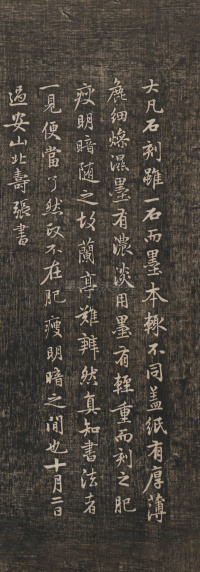 大凡石刻雖一石而墨本輒不同蓋紙有厚薄
麄細燥濕墨有濃淡用墨有輕重而刻之肥
瘦明暗隨之故蘭亭難辨然真知書法者
一見便當了然政不在肥瘦明暗之間也十月二日
過安山北壽張書